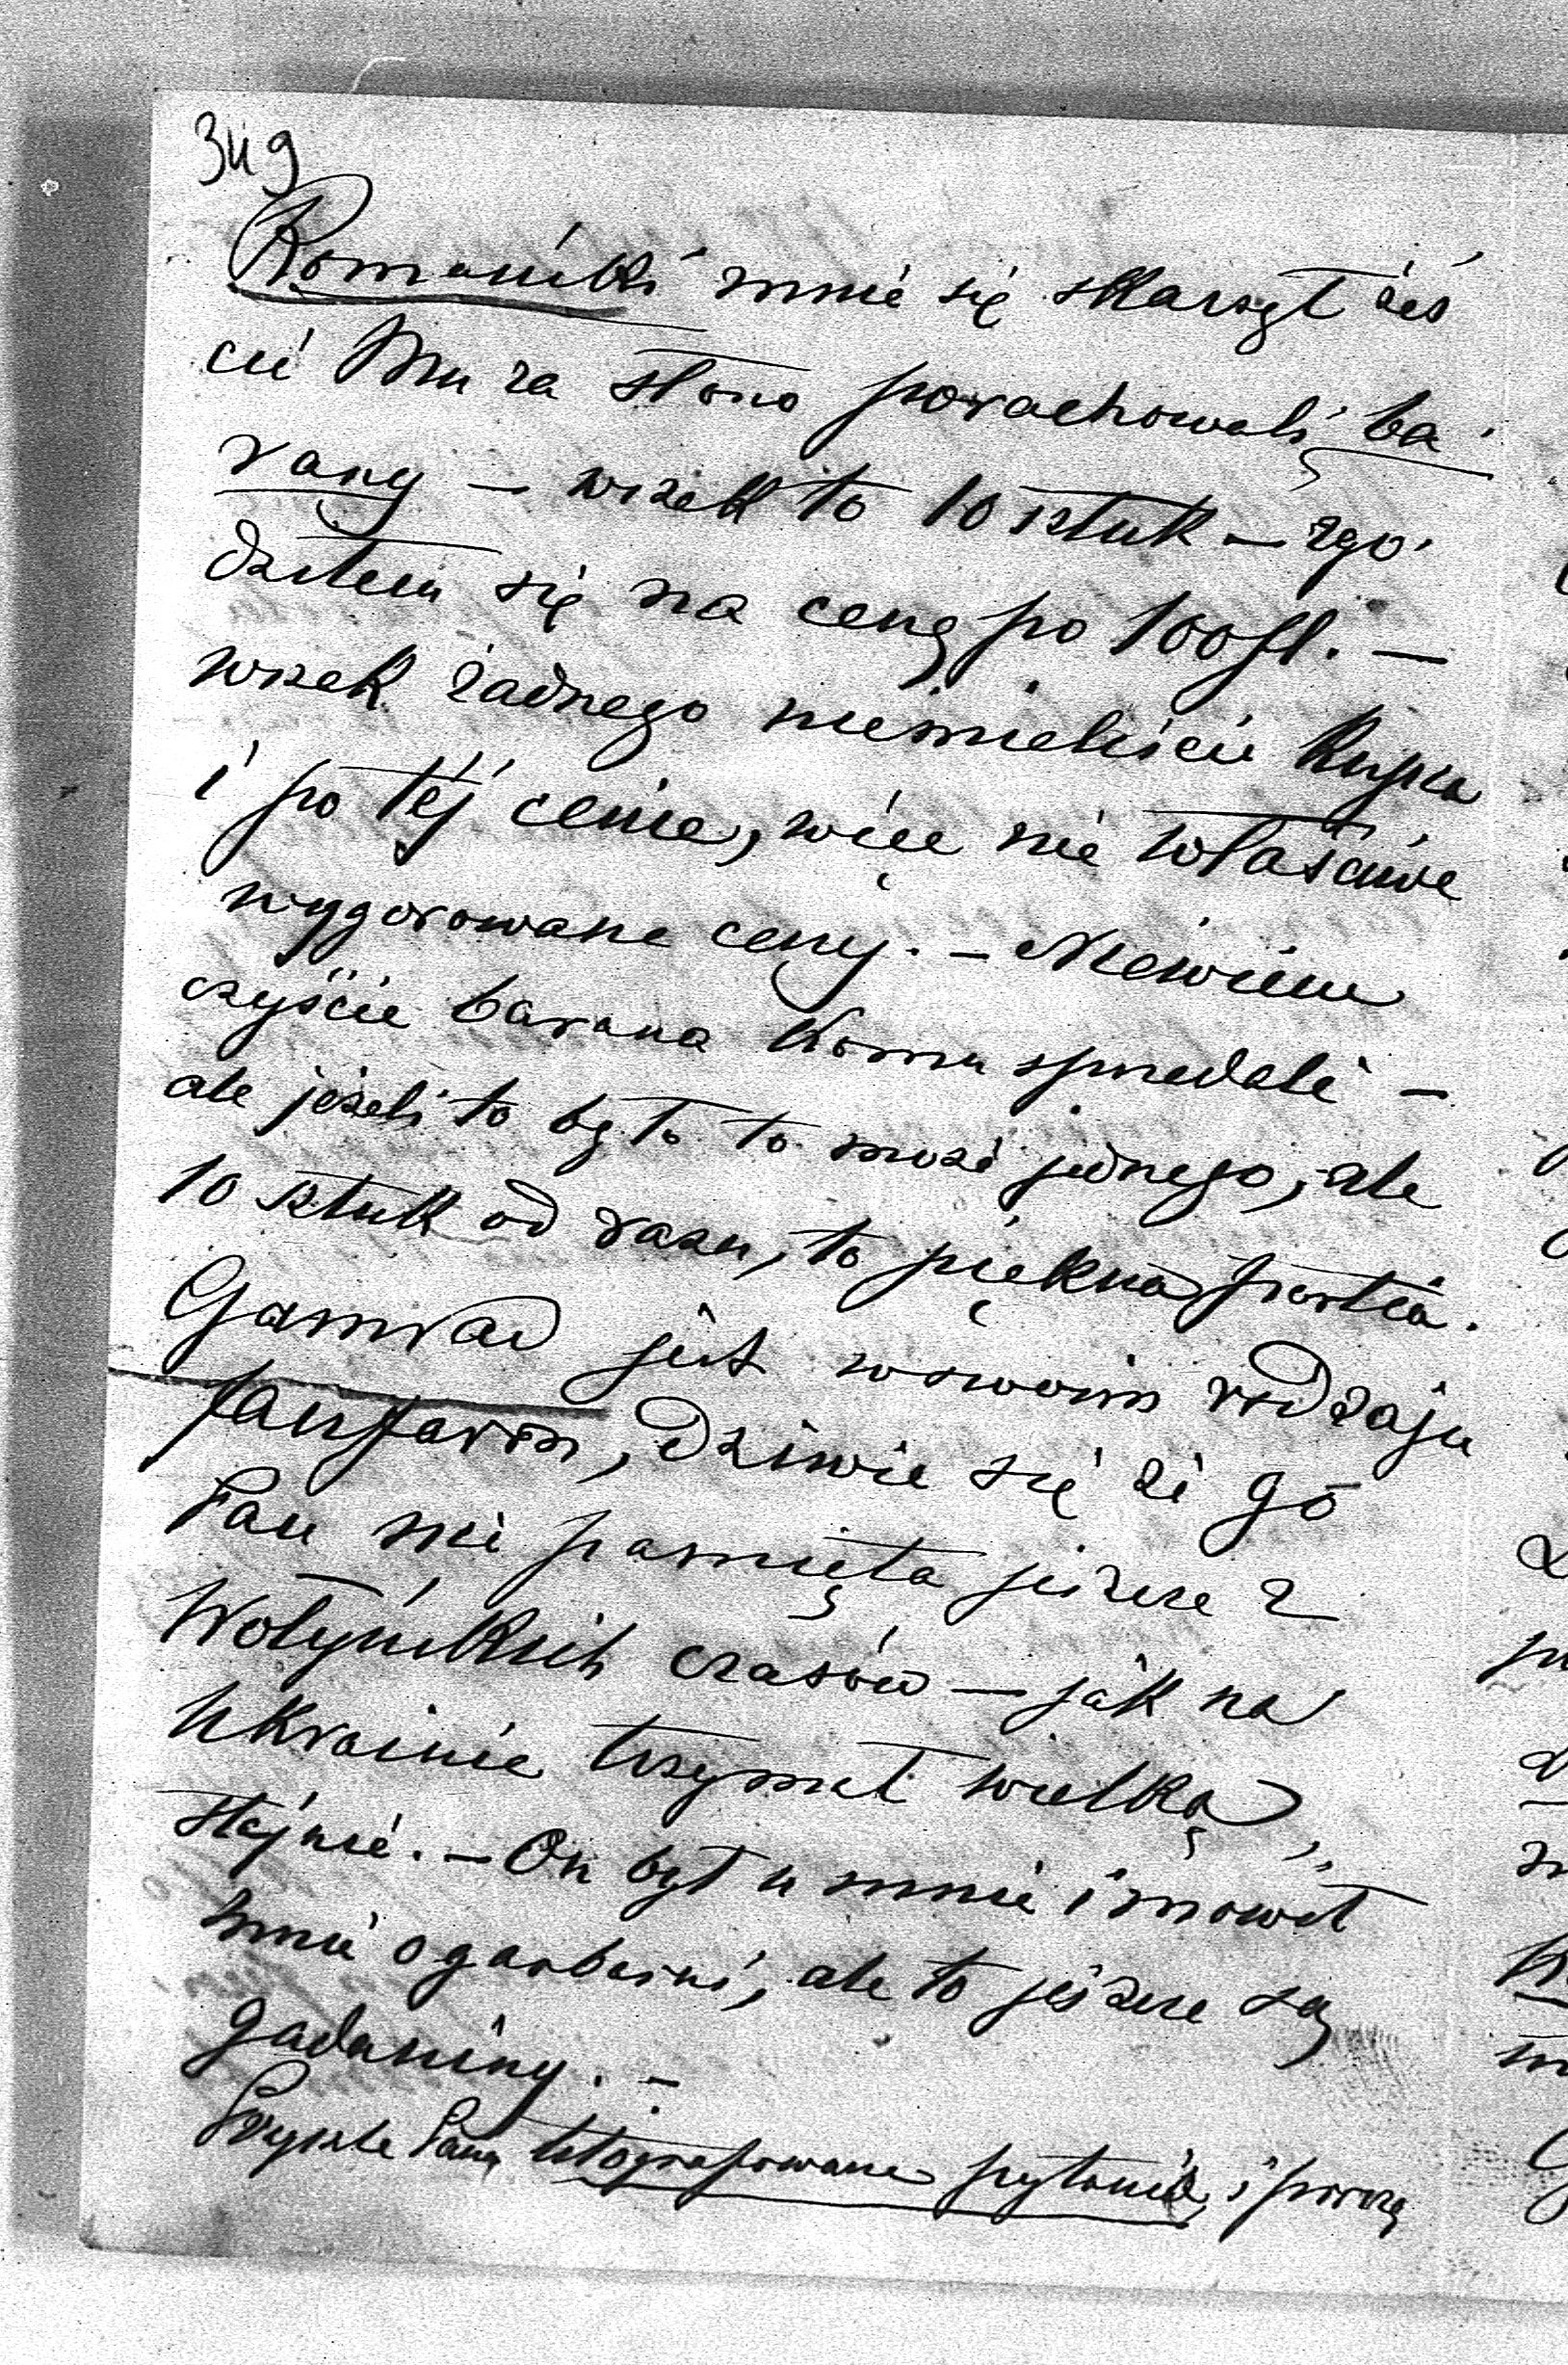 349
Romański mnie się skarzył żeś
cie Mu za słono porachowali ba
rany — wszak to 10 sztuk — zgo
dziłem się na cenę po 100 fl. —
wszak żadnego niemieliście kupca
i po téj cenie, więc nie właściwe
wygorowane ceny. — Niewiem
czyście barana komu sprzedali —
ale jeżeli to było to może jednego, ale
10 sztuk od razu, to piękna partia.
Gamrad jest wswoim rodzaju
fanfaron, dziwie się że go
Pan nie pamięta jeszcze z
Wołyńskich czasów — jak na
Ukrainie trzymał wielką
stajnie. — On był u mnie i mowił
mnie o garbarni, ale to jeszcze są
gadaniny. —
Przyszle Panu litografowane pytania, i proszę